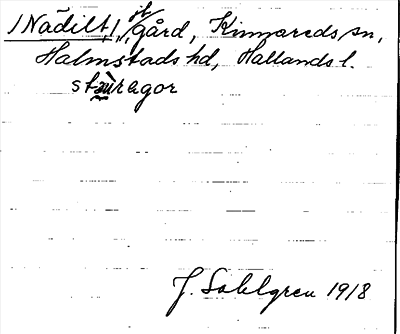 /Nädilt,/ öb gård, Kinnareds sn,
Halmstads hd, Hallands l.
J. Sahlgren 1918